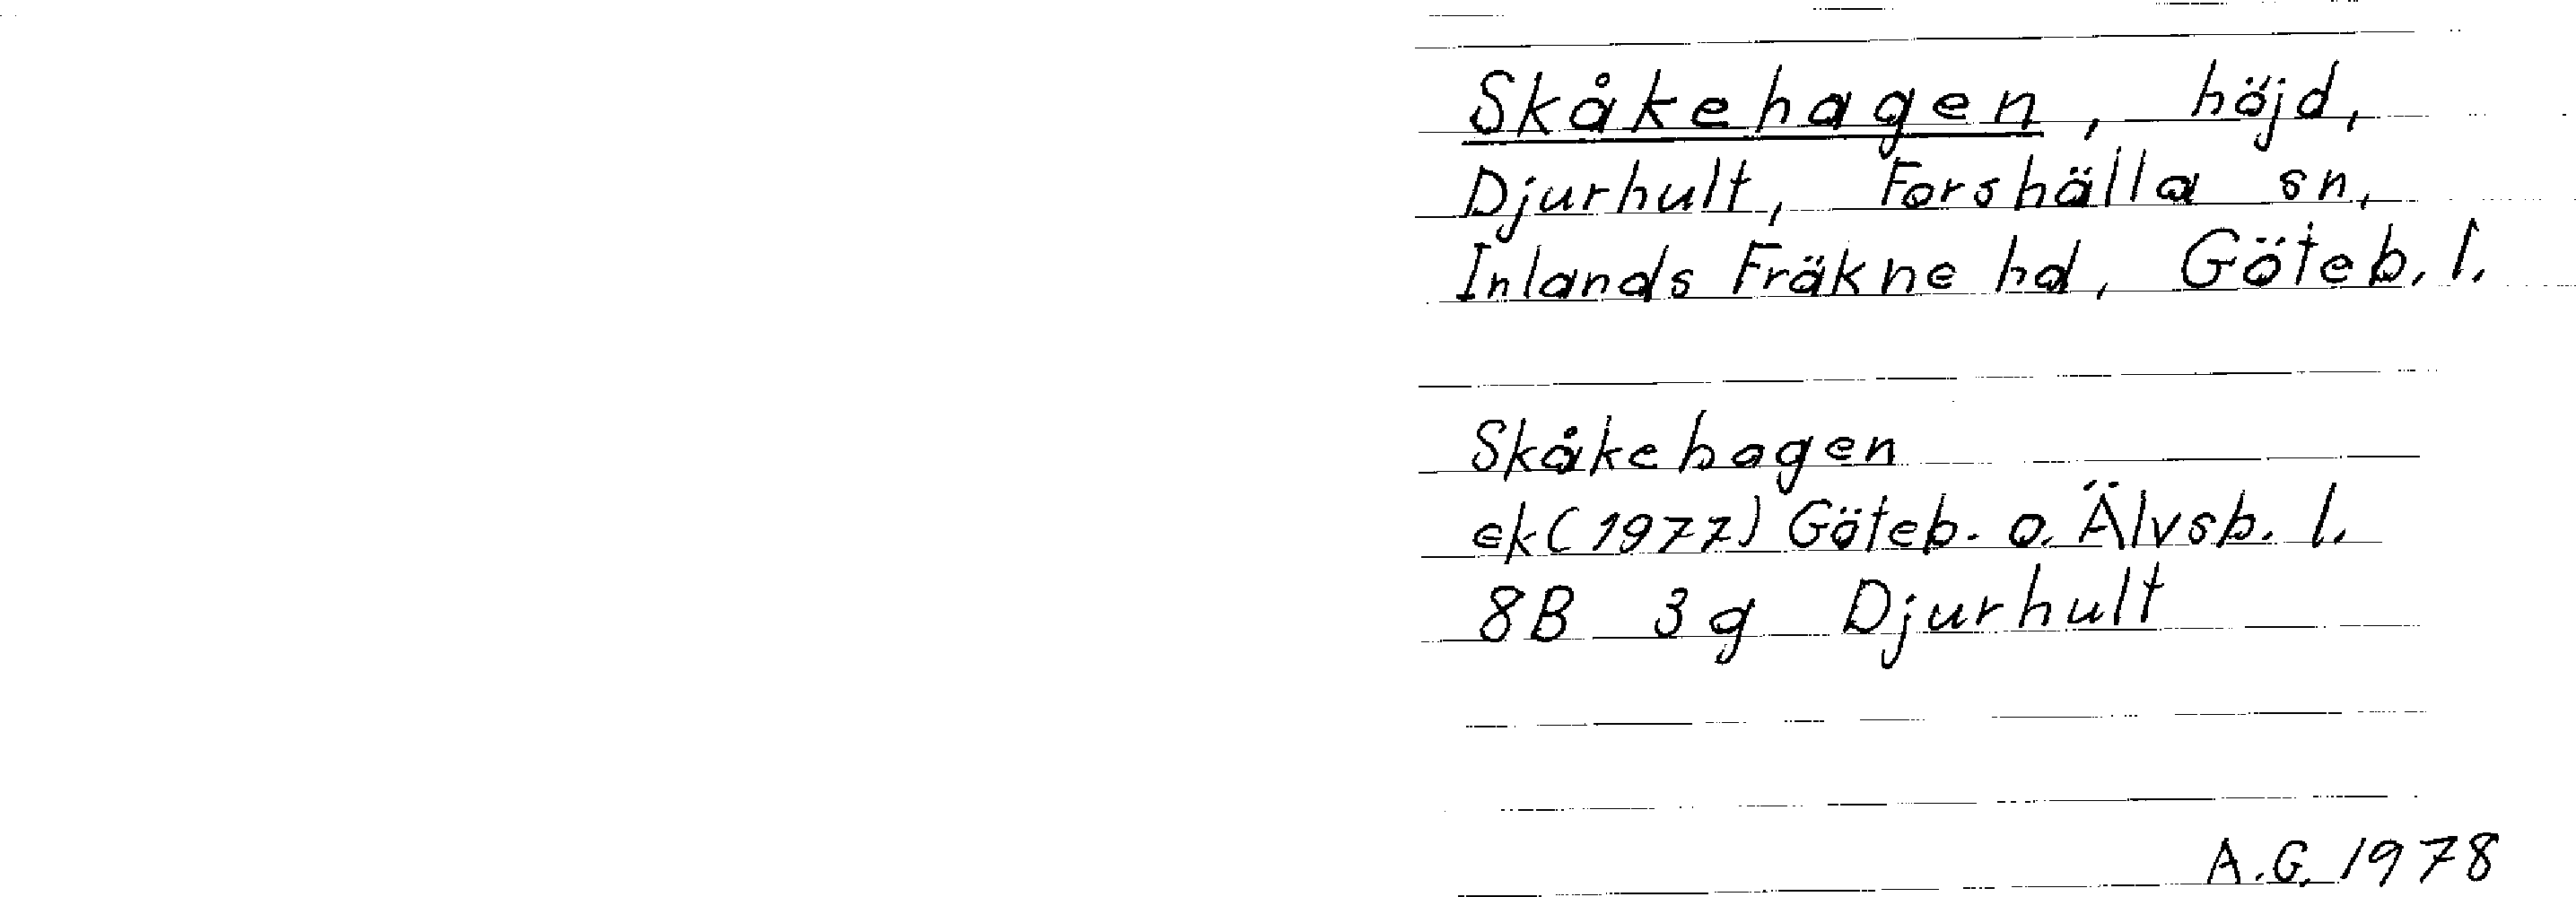 Skåkehagen, höjd,
Djurhult, Forshälla sn,
Inlands Fräkne hd, Göteb. l.
Skåkehagen
ek (1977) Göteb. o. Älvsb. l.
8B 3g Djurhult
A.G. 1978